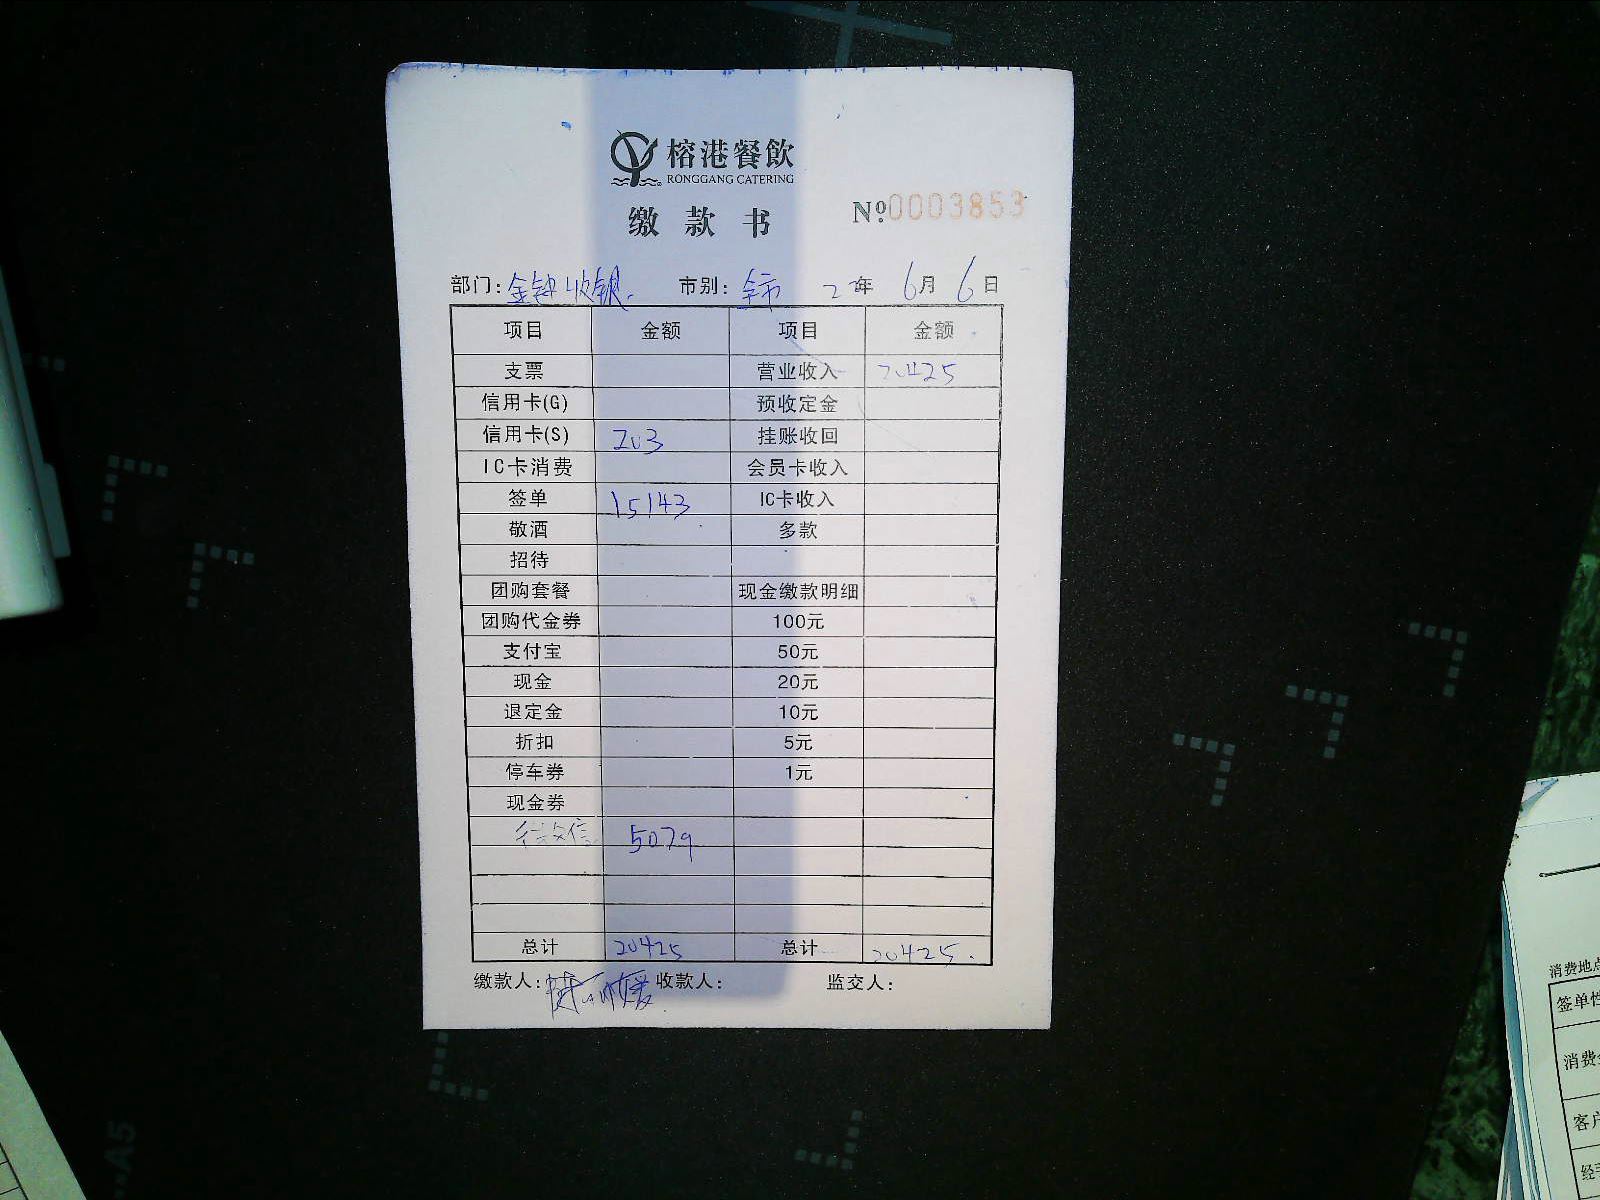 榕港餐飲
RONGGANG CATERING
缴款书 Nº:0003853
部门: 金钟收银. 市别: 全市 22年 6月 6日
项目 金额 项目 金额
支票 营业收入 20425
信用卡(G) 预收定金
信用卡(S) 203 挂账收回
IC卡消费 会员卡收入
签单 15143 IC卡收入
敬酒 多款
招待
团购套餐 现金缴款明细
团购代金券 100元
支付宝 50元
现金 20元
退定金 10元
折扣 5元
停车券 1元
现金券
微信 5079
总计 20425 总计 20425.
缴款人: 收款人: 监交人:
消费地点
签单
消费
客户
A5